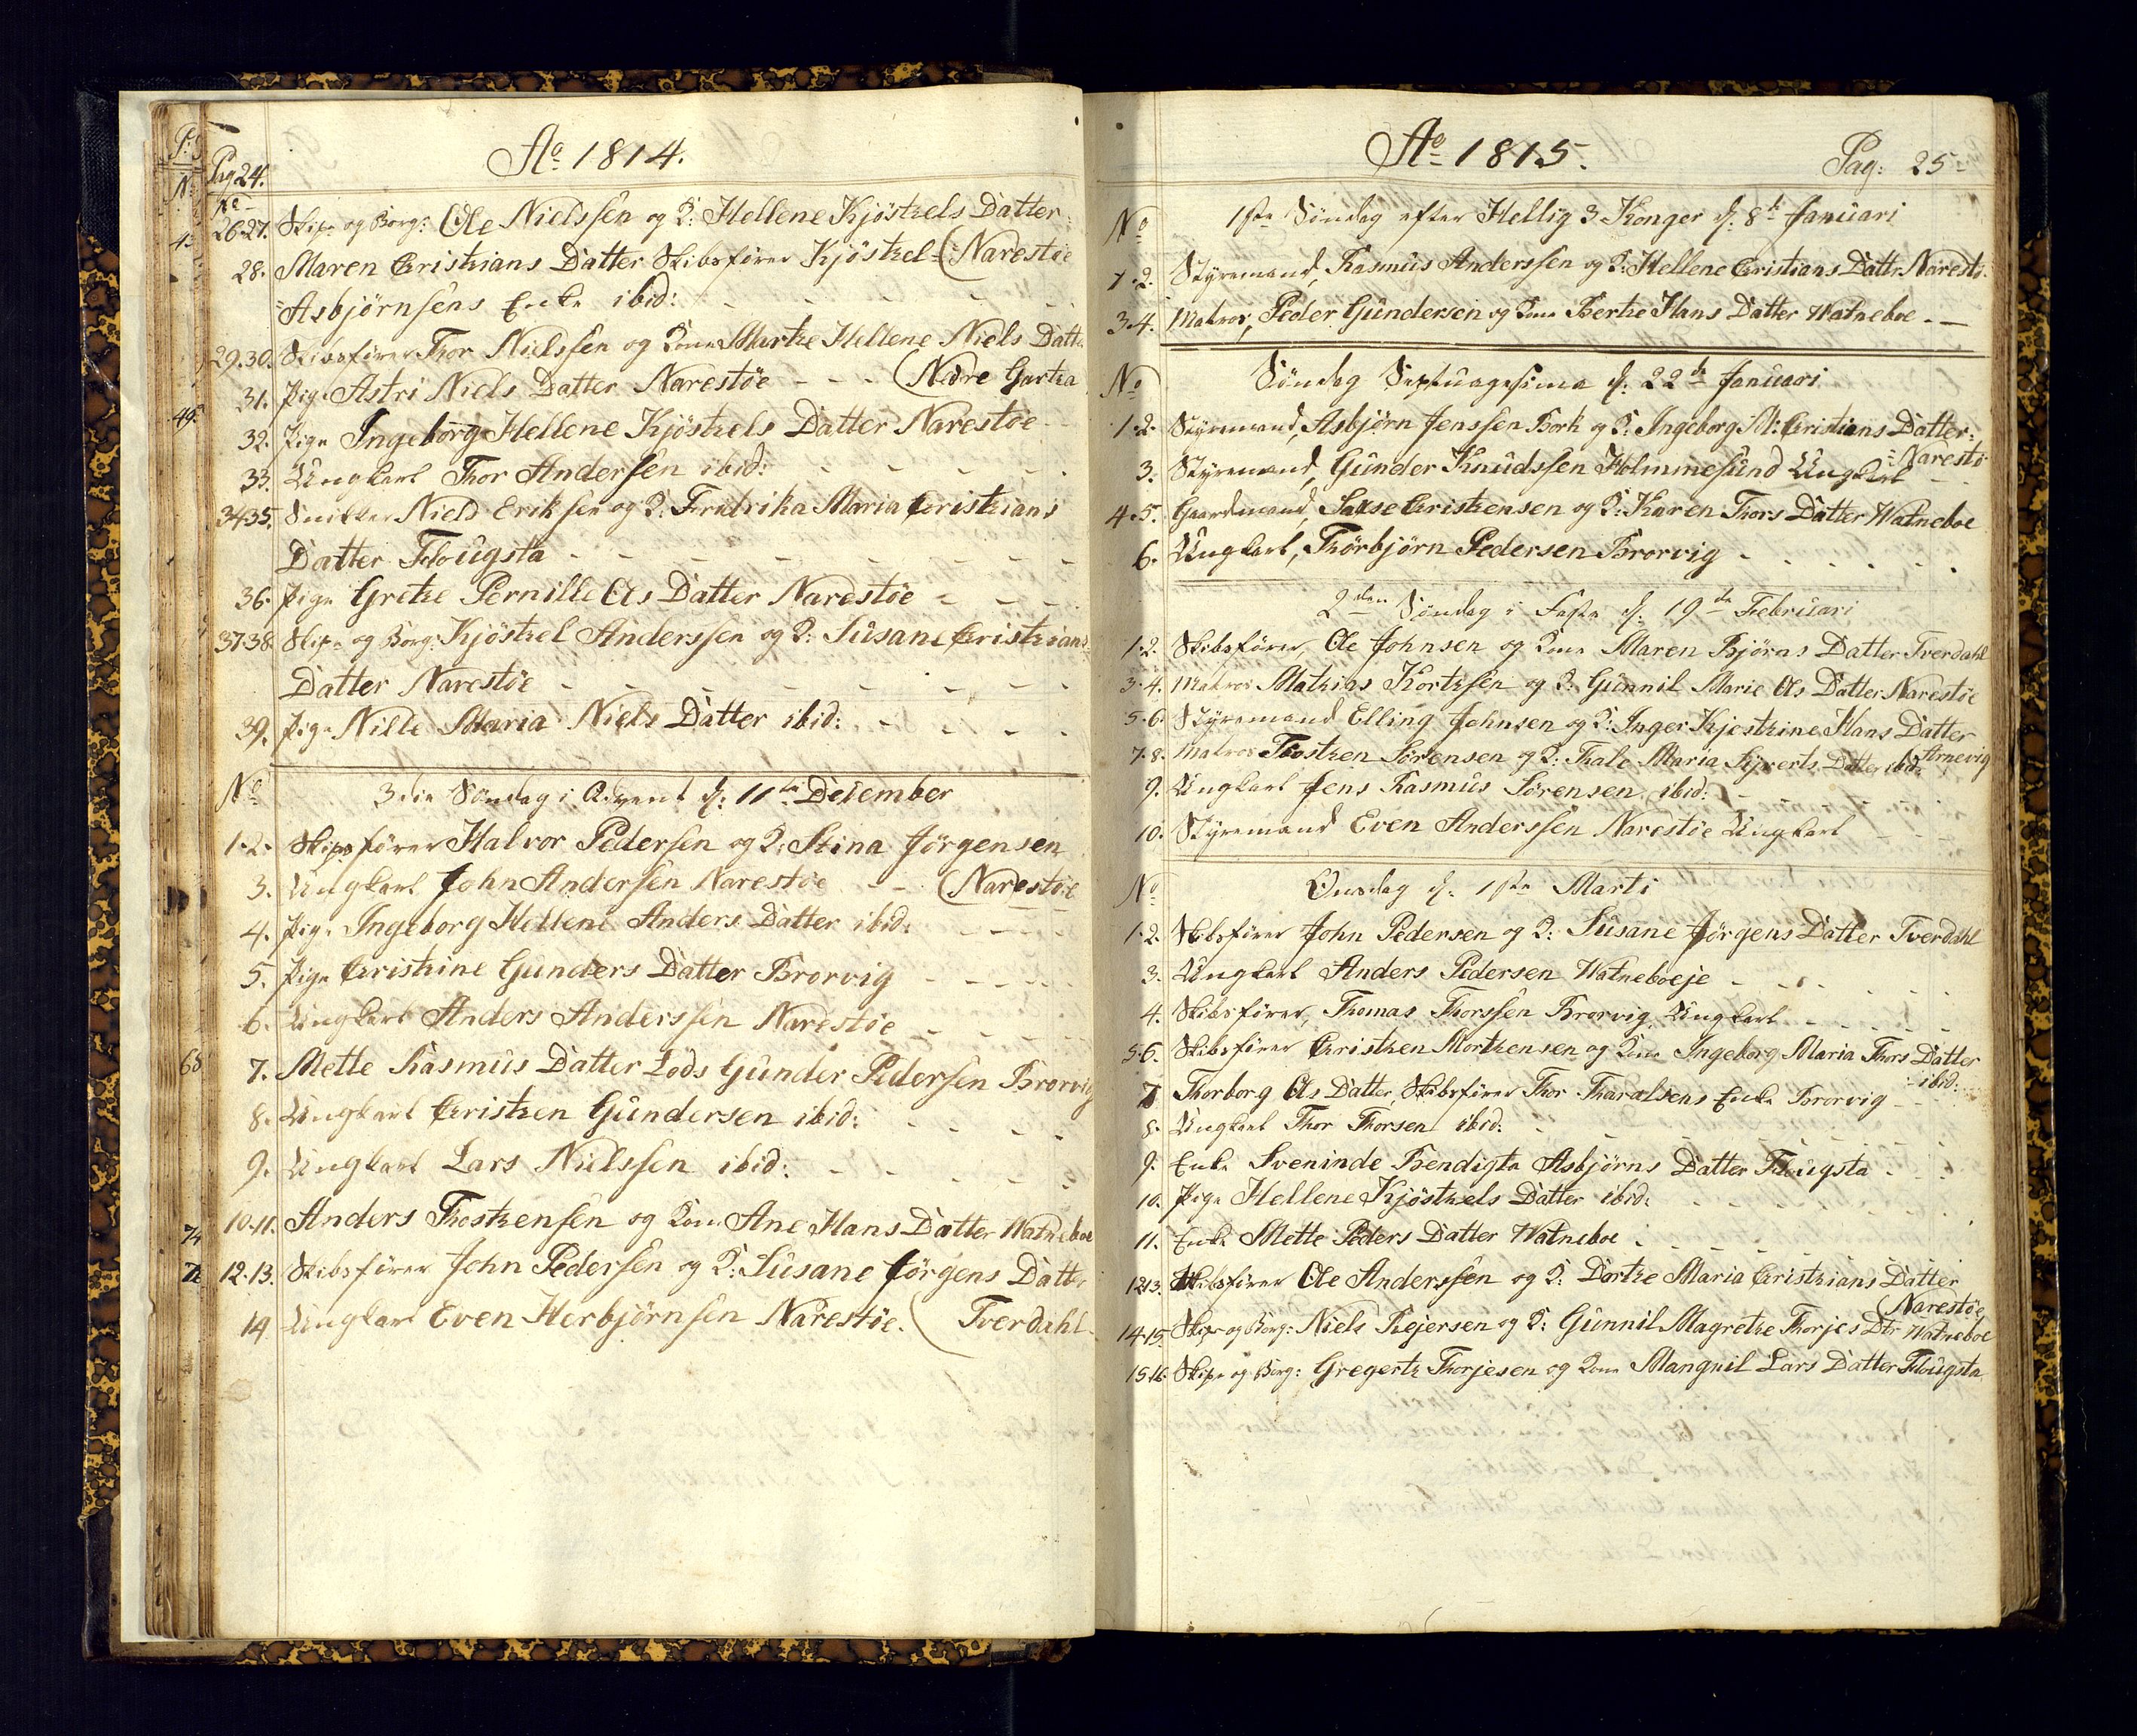 Pag 24.
Ao 1814.
No
26.27. Skip: og Borg: Ole Nielssen og K: Hellene Kjöstels Datter
28. Maren Christians Datter Skibsförer Kjöstel= (Narestöe
=Asbjörnsens Enke ibid:
29.30. Skibsförer Thor Nielssen og Kone Marthe Hellene Niels Datter
31. Pige Astri Niels Datter Narestöe - - - (Nedre Gartha
32. Pige Ingeborg Hellene Kjöstels Datter Narestöe
33. Ungkarl Thor Andersen ibid:
34.35. Snikker Niels Eriksen og K: Fridrika Maria Christians
Datter Flougsta
36. Pige Grethe Pernille Ols Datter Narestöe
37.38. Skip: og Borg: Kjöstel Anderssen og K: Susane Christians
Datter Narestöe
39. Pige Nille Maria Niels Datter ibid:
No 3die Söndag i Advent d: 11te December
1.2. Skipsförer Halvor Pedersen og K: Stina Jörgensen
3. Ungkarl John Andersen Narestöe - - (Narestöe
4. Pige Ingeborg Hellene Anders Datter ibid:
5. Pige Christine Gunders Datter Brorvig
6. Ungkarl Anders Anderssen Narestöe
7. Mette Rasmus Datter Lods Gunder Pedersen Brorvig
8. Ungkarl Christen Gundersen ibid:
9. Ungkarl Lars Nielssen ibid:
10.11. Anders Thostensen og Kone Ane Hans Datter Watneboe
12.13. Skibsförer John Pedersen og K: Susane Jörgens Datter
14 Ungkarl Even Herbjörnsen Narestöe. (Tverdahl
Ao 1815.
Pag: 25
No 1ste Söndag efter Hellig 3 Konger d: 8de Januari
1.2. Styremand, Rasmus Anderssen og K: Hellene Christians Dattr Narestö.
3.4. Matros, Peder Gundersen og Kone Berthe Hans Datter Watneboe
No Söndag Septuagesima d: 22de Januari
1.2. Styremand, Asbjörn Jenssen Bork og K: Ingeborg M: Christians Datter
=Narestö
3. Styremand, Gunder Knudssen Holmmesund Ungkarl
4.5. Gaardmand, Saxse Christensen og K: Karen Thors Datter Watneboe
6. Ungkarl, Thörbjörn Pedersen Brorvig
2den Söndag i Faste d: 19de Februari
1.2. Skibsförer, Ole Johnsen og Kone Maren Björns Datter Tverdahl
3.4. Matros Mathias Kortesen og K: Gunnil Marie Ols Datter Narestöe
5.6. Styremand Elling Johnsen og K: Inger Kjestine Hans Datter
Arnevig
7.8. Matros Thosten Sörensen og K: Thale Maria Syverts Datter ibid:
9. Ungkarl Jens Rasmus Sörensen ibid:
10. Styremand Even Anderssen Narestöe Ungkarl
No Onsdag d: 1ste Marti
1.2. Skibsförer John Pedersen og K: Susane Jörgens Datter Tverdahl
3. Ungkarl Anders Pedersen Watneboeje
4. Skibsförer, Thomas Thorssen Brorvig Ungkarl
5.6. Skibsförer Christen Mortensen og Kone Ingeborg Maria Thors Datter
=ibid:
7 Thorborg Ols Datter, Skibsförer Thor Tharalsens Enke Brorvig
8. Ungkarl Thor Thorsen ibid:
9. Enke Sveninde Bendigta Asbjörns Datter Flougsta
10. Pige Hellene Kjöstels Datter ibid:
11. Enke Mette Peders Datter Watneboe
12.13. Skibsförer Ole Anderssen og K: Dorthe Maria Christians Datter
(Narestöe
14.15. Skip: og Borg: Niels Rejersen og K: Gunnil Magrethe Thorjes Dtr Watneboe
15.16. Skip: og Borg: Gregerts Thorjesen og Kone Mangnil Lars Datter Flougsta